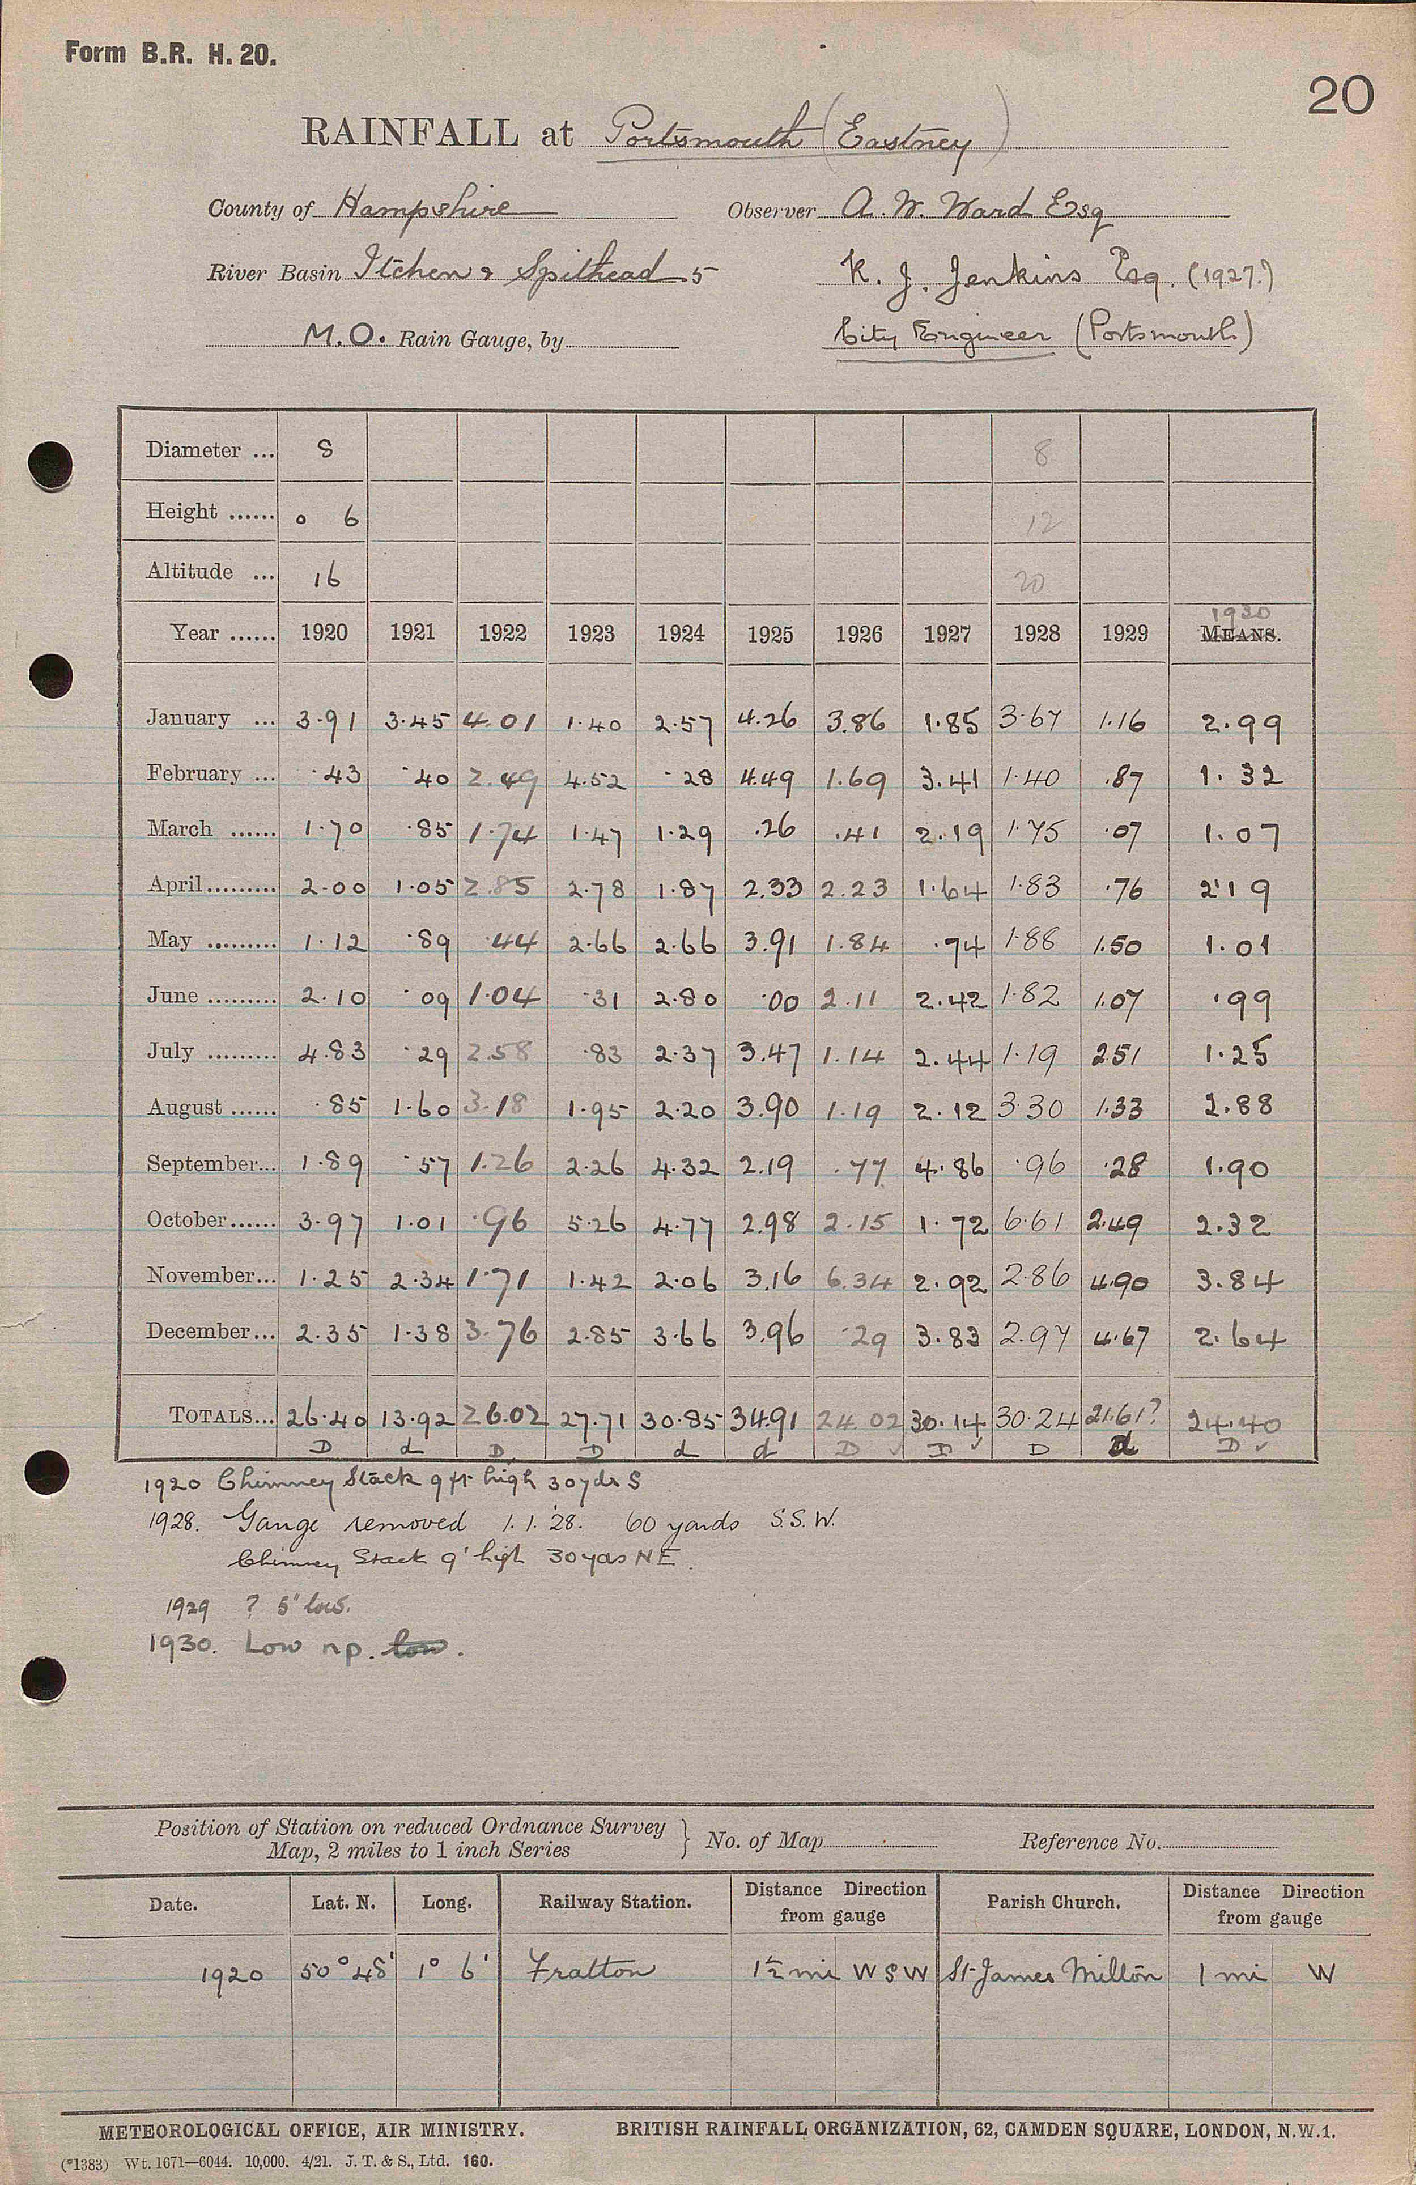 Form B.R. H. 20.
20
RAINFALL at Portsmouth (Eastney)
County of Hampshire Observer A. W. Ward Esq
River Basin Itchen & Spithead 5 K. J. Jenkins Esq. (1927.)
M.O. Rain Gauge, by City Engineer (Portsmouth)
Diameter ... 8 8
Height ...... 0 6 12
Altitude ... 16 20
1930
Year ...... 1920 1921 1922 1923 1924 1925 1926 1927 1928 1929 MEANS.
January ... 3.91 3.45 4.01 1.40 2.57 4.26 3.86 1.85 3.67 1.16 2.99
February ... .43 .40 2.49 4.52 .28 4.49 1.69 3.41 1.40 .87 1.32
March ...... 1.70 .85 1.74 1.47 1.29 .26 .41 2.19 1.75 .07 1.07
April......... 2.00 1.05 2.85 2.78 1.87 2.33 2.23 1.64 1.83 .76 2.19
May ......... 1.12 .89 .44 2.66 2.66 3.91 1.84 .74 1.88 1.50 1.01
June ......... 2.10 .09 1.04 .31 2.80 .00 2.11 2.42 1.82 1.07 .99
July ......... 4.83 .29 2.58 .83 2.37 3.47 1.14 2.44 1.19 2.51 1.25
August ...... .85 1.60 3.18 1.95 2.20 3.90 1.19 2.12 3.30 1.33 2.88
September... 1.89 .57 1.26 2.26 4.32 2.19 .77 4.86 .96 .28 1.90
October...... 3.97 1.01 .96 5.26 4.77 2.98 2.15 1.72 6.61 2.49 2.32
November... 1.25 2.34 1.71 1.42 2.06 3.16 6.34 2.92 2.86 4.90 3.84
December... 2.35 1.38 3.76 2.85 3.66 3.96 .29 3.83 2.97 4.67 2.64
TOTALS... 26.40 13.92 26.02 27.71 30.85 34.91 24.02 30.14 30.24 21.61? 24.40
D d D D d d D ✓ D ✓ D d D ✓
1920 Chimney Stack 9 ft high 30 yds S
1928. Gauge removed 1.1.'28. 60 yards S.S.W.
Chimney Stack 9' high 30 yds NE.
1929 ? 5" low.
1930. Low np. low.
Position of Station on reduced Ordnance Survey
Map, 2 miles to 1 inch Series } No. of Map Reference No.
Date. Lat. N. Long. Railway Station. Distance from gauge Direction Parish Church. Distance from gauge Direction
1920 50° 48' 1° 6' Fratton 1½ mi W S W St James Milton 1 mi W
METEOROLOGICAL OFFICE, AIR MINISTRY. BRITISH RAINFALL ORGANIZATION, 62, CAMDEN SQUARE, LONDON, N.W.1.
(*1383) Wt. 1671—6044. 10,000. 4/21. J. T. & S., Ltd. 160.